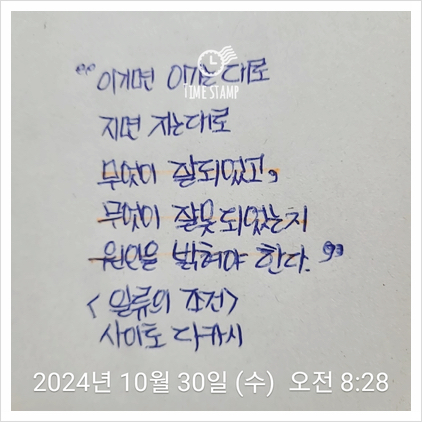 "이기면 이기는대로
TIME STAMP
지면 지는대로
무엇이 잘되었고,
무엇이 잘못되었는지
원인을 밝혀야 한다."
<일류의 조건>
사이토 다카시
2024년 10월 30일 (수) 오전 8:28